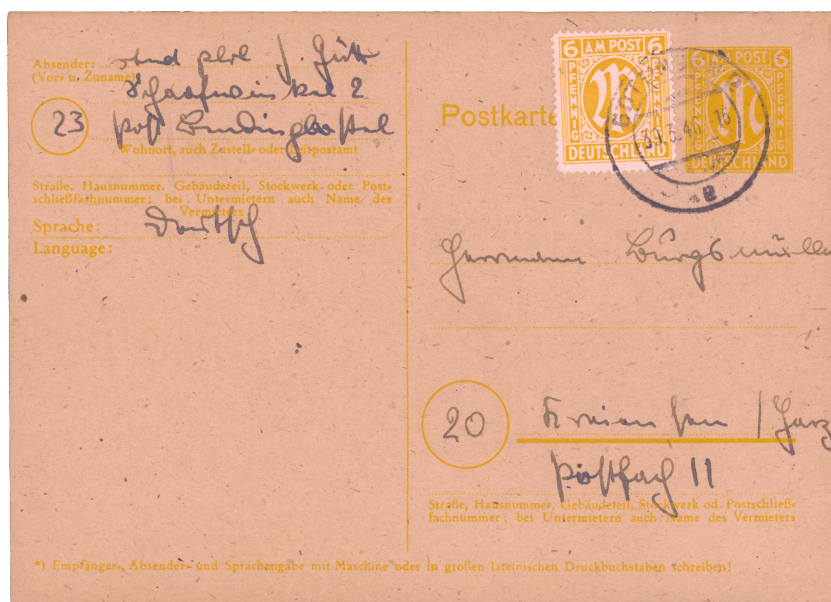 Absender:
(Vor- u. Zuname)
2
23
Post
Wohnort, auch Zustell- oder Leitpostamt
Straße, Hausnummer, Gebäudeteil, Stockwerk oder Post-
schließfachnummer; bei Untermietern auch Name des
Vermieters
Sprache: Deutsch
Language:
Postkarte
6 AM POST 6
PFENNIG PFENNIG
M
DEUTSCHLAND
6 AM POST 6
PFENNIG
M
DEUTSCHLAND
16
a
Herrmann Burgsmüller
20 Kreiensen / Harz
Postfach 11
Straße, Hausnummer, Gebäudeteil, Stockwerk od. Postschließ-
fachnummer; bei Untermietern auch Name des Vermieters
*) Empfänger-, Absender- und Sprachangabe mit Maschine oder in großen lateinischen Druckbuchstaben schreiben!